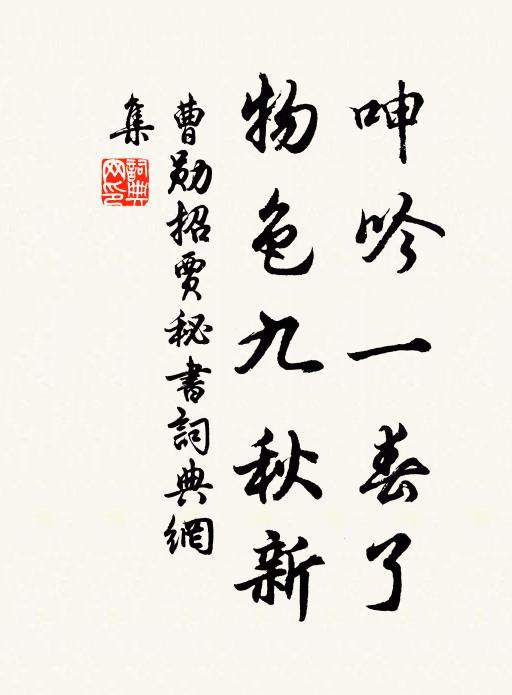 呻吟一春了
物色九秋新
曹勛招賈秘書詞典網
集
詞典網印